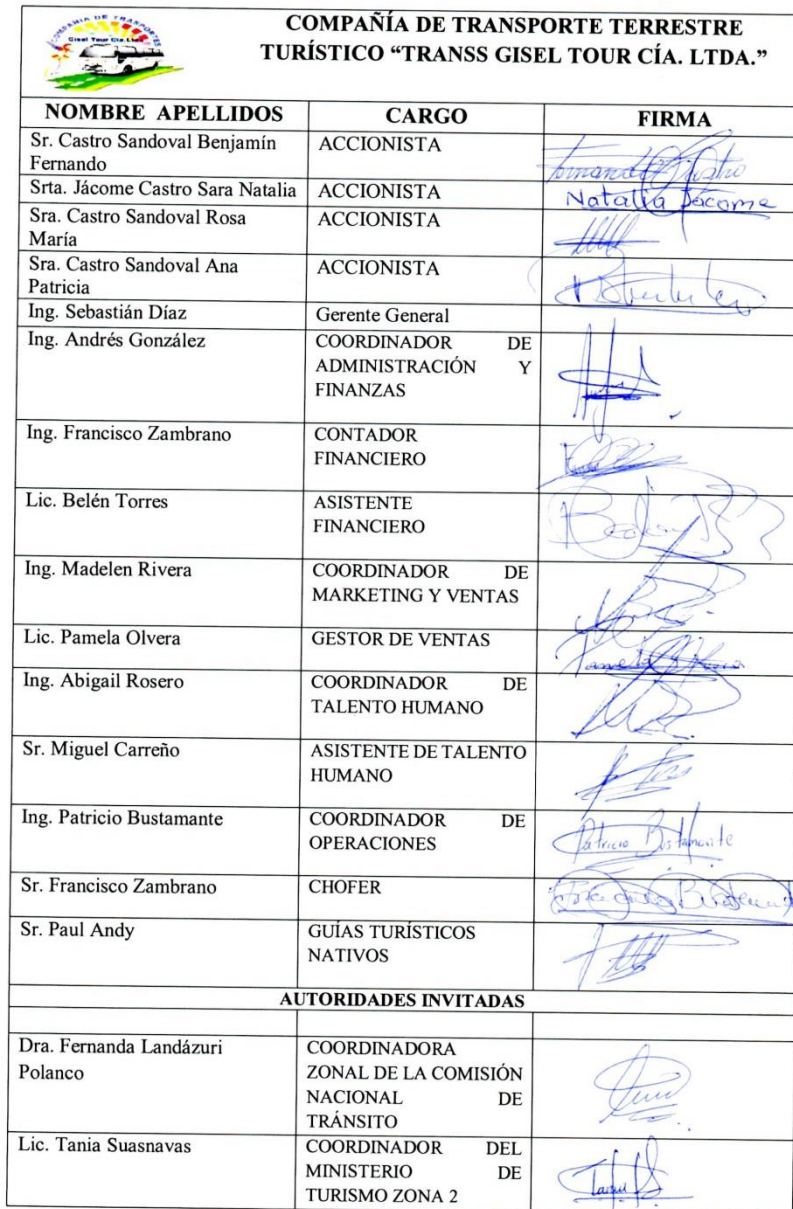 COMPAÑIA DE TRANSPORTES
Gisel Tour Cia.Ltda
COMPAÑÍA DE TRANSPORTE TERRESTRE
TURÍSTICO “TRANSS GISEL TOUR CÍA. LTDA.”
NOMBRE APELLIDOS CARGO FIRMA
Sr. Castro Sandoval Benjamín ACCIONISTA
Fernando Fernando Castro
Srta. Jácome Castro Sara Natalia ACCIONISTA Natalia Jácome
Sra. Castro Sandoval Rosa ACCIONISTA
María
Sra. Castro Sandoval Ana ACCIONISTA
Patricia
Ing. Sebastián Díaz Gerente General
Ing. Andrés González COORDINADOR DE
ADMINISTRACIÓN Y
FINANZAS
Ing. Francisco Zambrano CONTADOR
FINANCIERO
Lic. Belén Torres ASISTENTE
FINANCIERO
Ing. Madelen Rivera COORDINADOR DE
MARKETING Y VENTAS
Lic. Pamela Olvera GESTOR DE VENTAS
Ing. Abigail Rosero COORDINADOR DE
TALENTO HUMANO
Sr. Miguel Carreño ASISTENTE DE TALENTO
HUMANO
Ing. Patricio Bustamante COORDINADOR DE
OPERACIONES Patricio Bustamante
Sr. Francisco Zambrano CHOFER
Sr. Paul Andy GUÍAS TURÍSTICOS
NATIVOS
AUTORIDADES INVITADAS
Dra. Fernanda Landázuri COORDINADORA
Polanco ZONAL DE LA COMISIÓN
NACIONAL DE
TRÁNSITO
Lic. Tania Suasnavas COORDINADOR DEL
MINISTERIO DE
TURISMO ZONA 2